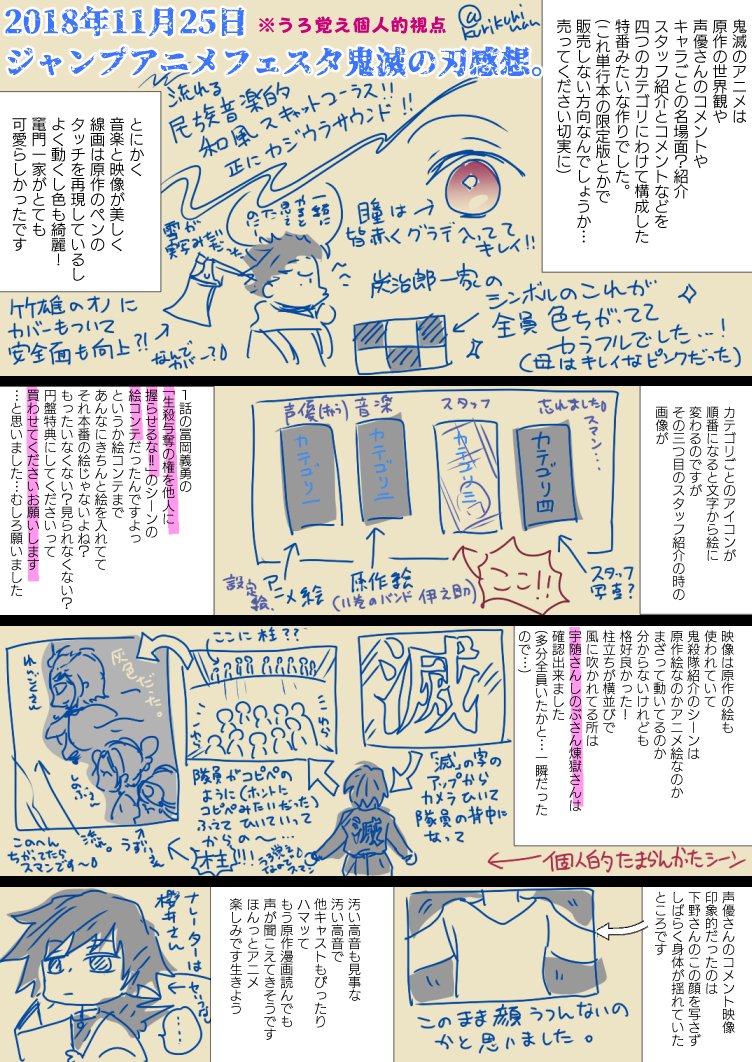 2018年11月25日
※うろ覚え個人的視点
@kurikuniwan
ジャンプアニメフェスタ鬼滅の刃感想。
鬼滅のアニメは
原作の世界観や
声優さんのコメントや
キャラごとの名場面?紹介
スタッフ紹介とコメントなどを
四つのカテゴリにわけて構成した
特番みたいな作りでした。
(これ単行本の限定版とかで
販売しない方向なんでしょうか…
売ってください切実に)
流れる
民族音楽的
和風スキャットコーラス!!
正にカジウラサウンド!!
瞳は
皆赤くグラデ入ってて
キレイ!!
とにかく
音楽と映像が美しく
線画は原作のペンの
タッチを再現しているし
よく動くし色も綺麗!
竈門一家がとても
可愛らしかったです
一緒に
やると
思てた
のに…
竹雄のオノに
カバーもついて
安全面も向上?!
なんで
カバー?
炭治郎一家の
シンボルのこれが
全員色ちがってて
カラフルでした…!
(母はキレイなピンクだった)
カテゴリごとのアイコンが
順番になると文字から絵に
変わるのですが
その三つ目のスタッフ紹介の時の
画像が
声優(おう)
音楽
スタッフ
忘れました。
スマン…
カテゴリ一
カテゴリ二
カテゴリ三
カテゴリ四
設定
絵、
アニメ絵
原作絵
(11巻のバンド伊之助)
ここ!!
スタッフ
写真?
1話の冨岡義勇の
「生殺与奪の権を他人に
握らせるな!!」のシーンの
絵コンテだったんですよっ
というか絵コンテまで
あんなにきちんと絵を入れてて
それ本番の絵じゃないよね?
もったいなくない?見られなくない?
円盤特典にしてくださいって
買わせてくださいお願いします
…と思いました…むしろ願いました
映像は原作の絵も
使われていて
鬼殺隊紹介のシーンは
原作絵なのかアニメ絵なのか
まざって動いてるのか
分からないけれども
格好良かった!
柱立ちが横並びで
風に吹かれてる所は
宇随さんしのぶさん煉獄さんは
確認出来ました
(多分全員いたかと…一瞬だった
ので…)
滅
「滅」の字の
アップから
カメラひいて
隊員の背中に
なって
滅
ここに柱??
隊員がコピペの
ように(ホントに
コピペみたいだった)
ふえてひいていって
からの〜…
「柱」!!
灰色だった。
れんごくさん
しのぶ
うずいさん
このへん
ちがってたら
スマンです〜
←個人的たまらんかったシーン
声優さんのコメント映像
印象的だったのは
下野さんのこの顔を写さず
しばらく身体が揺れていた
ところです
このまま顔うつんないの
かと思いました。
汚い高音も見事な
汚い高音で
他キャストもぴったり
ハマッて
もう原作漫画読んでも
声が聞こえてきそうです
ほんっとアニメ
楽しみです生きよう
ナレーターは
櫻井さん
…